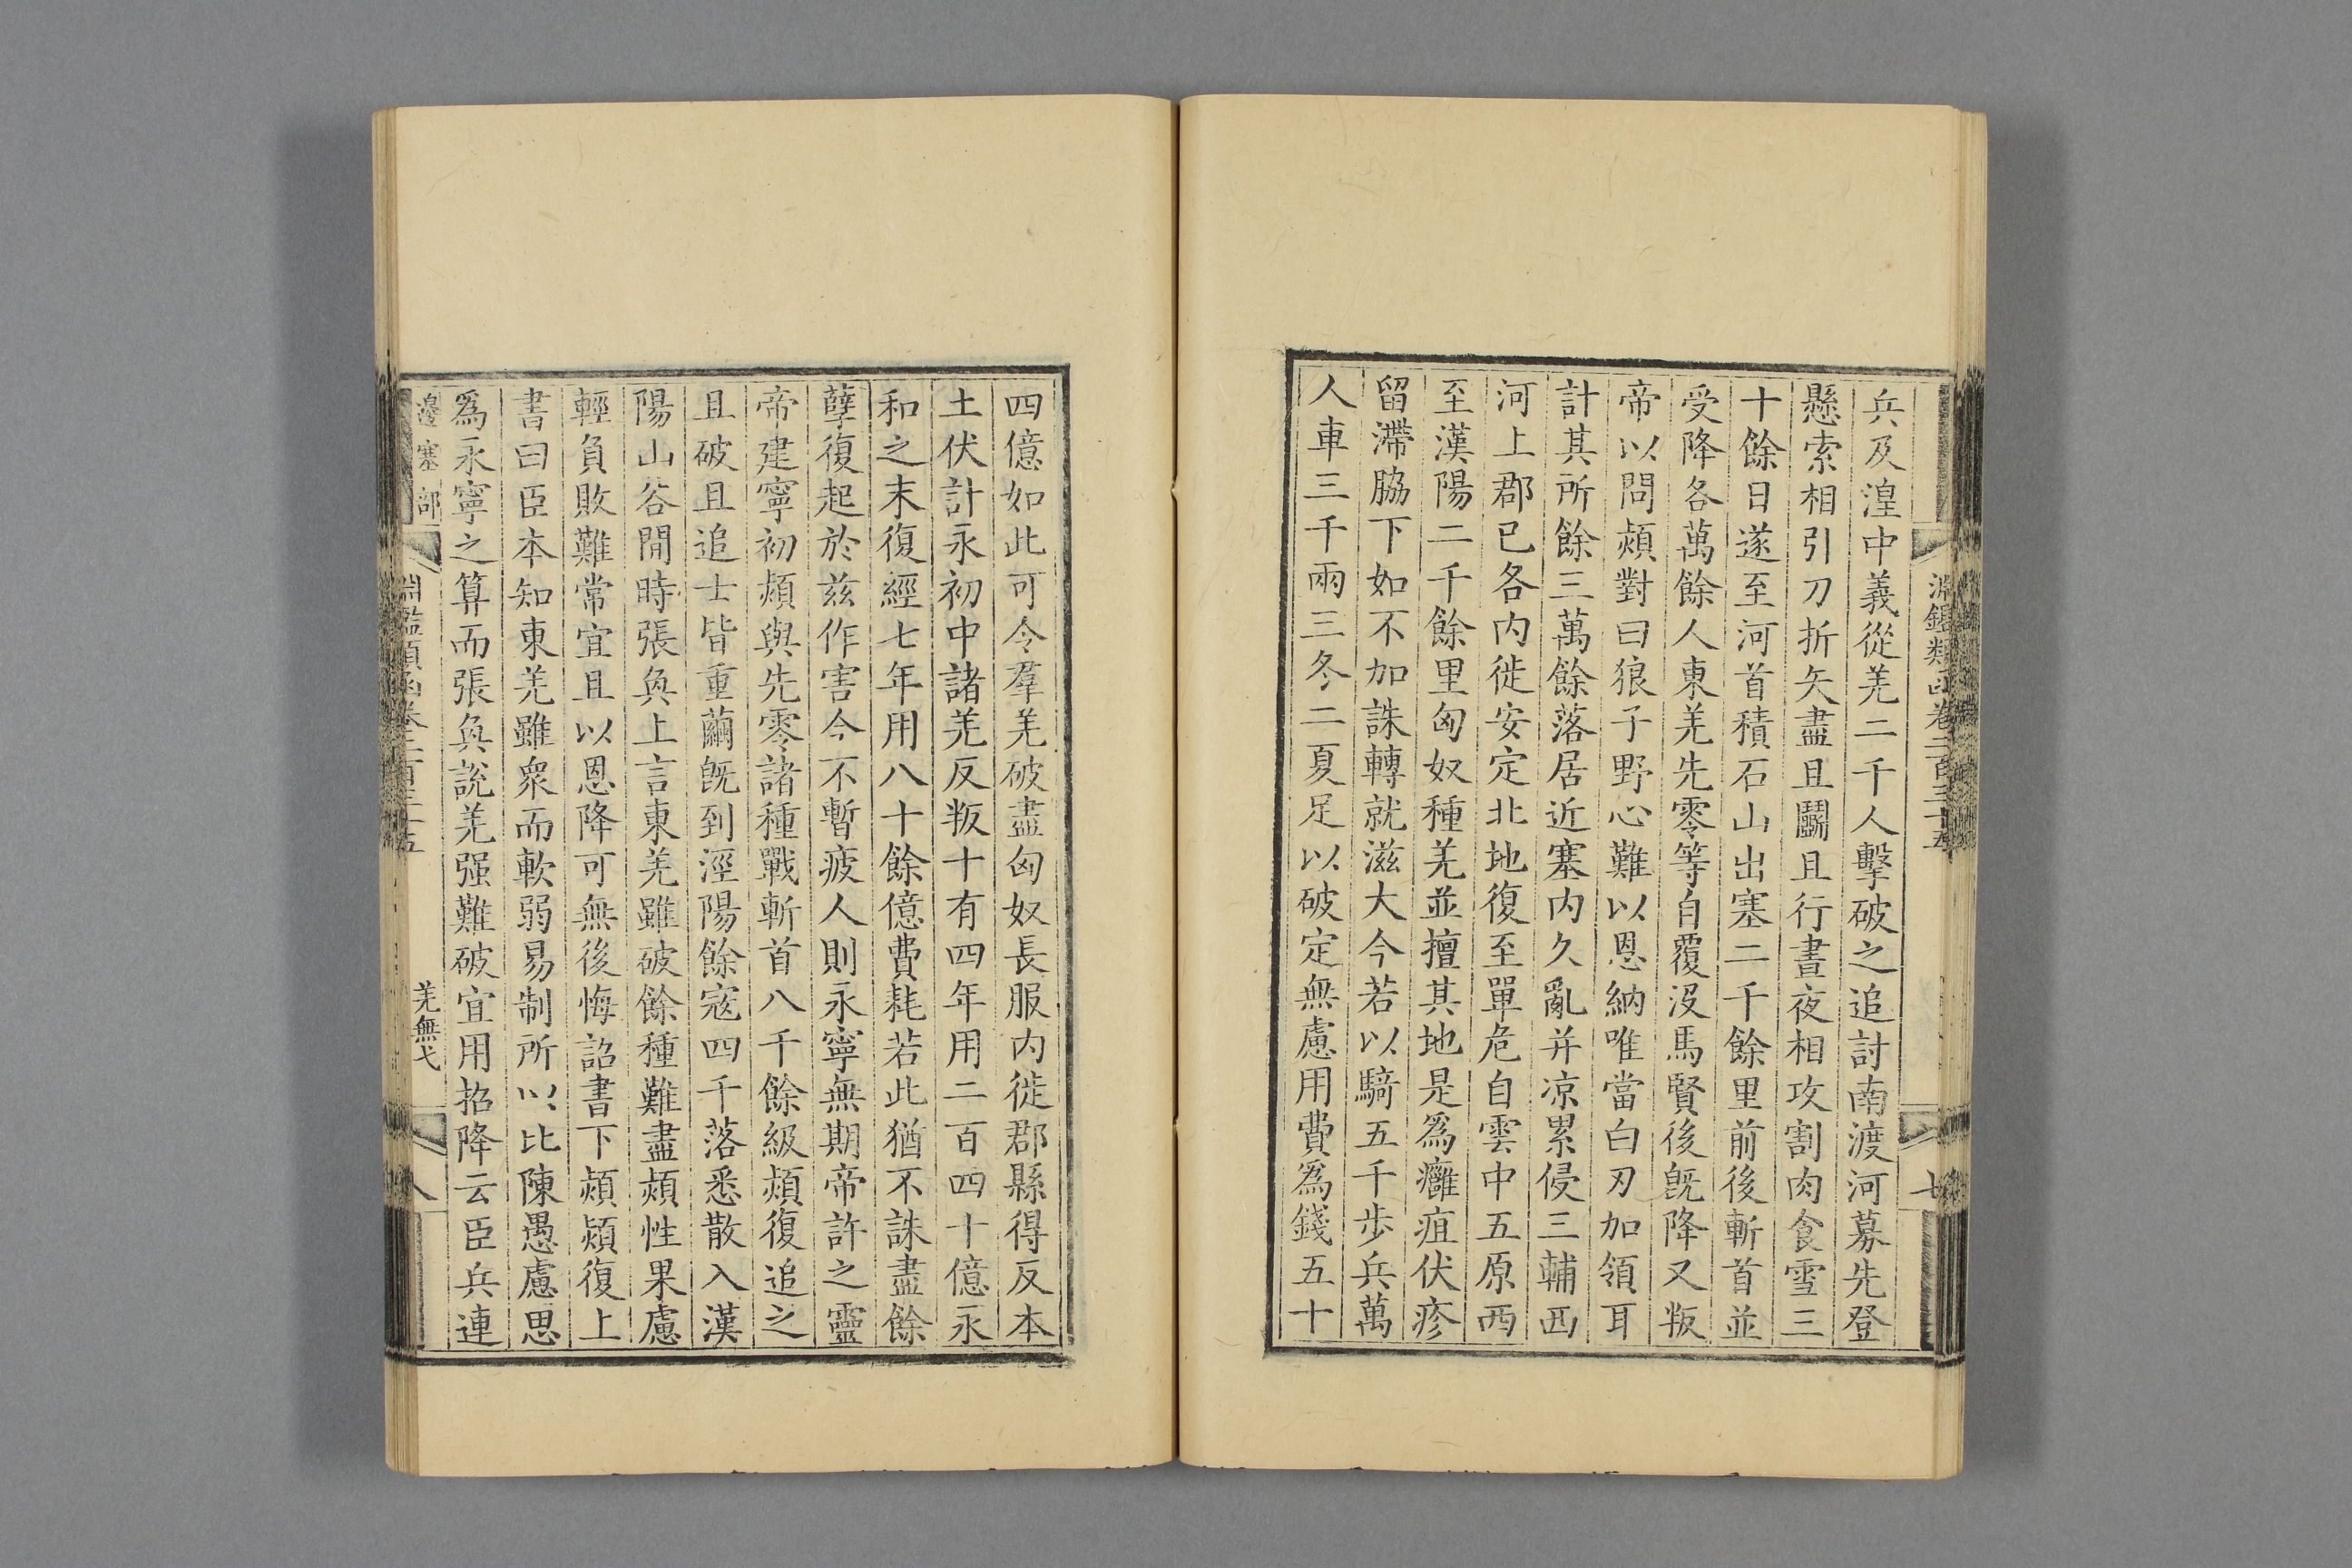 淵鑑類函卷二百三十五
七
兵及湟中義從羌二千人擊破之追討南渡河募先登
懸索相引刀折矢盡且鬬且行晝夜相攻割肉食雪三
十餘日遂至河首積石山出塞二千餘里前後斬首並
受降各萬餘人東羌先零等自覆沒馬賢後旣降又叛
帝以問熲對曰狼子野心難以恩納唯當白刃加領耳
計其所餘三萬餘落居近塞內久亂并凉累侵三輔西
河上郡已各內徙安定北地復至單危自雲中五原西
至漢陽二千餘里匈奴種羌並擅其地是爲癰疽伏疹
留滯脇下如不加誅轉就滋大今若以騎五千步兵萬
人車三千兩三冬二夏足以破定無慮用費爲錢五十
四億如此可令羣羌破盡匈奴長服內徙郡縣得反本
土伏計永初中諸羌反叛十有四年用二百四十億永
和之末復經七年用八十餘億費耗若此猶不誅盡餘
孽復起於兹作害今不暫疲人則永寧無期帝許之靈
帝建寧初熲與先零諸種戰斬首八千餘級熲復追之
且破且追士皆重繭旣到涇陽餘寇四千落悉散入漢
陽山谷間時張奐上言東羌雖破餘種難盡熲性果慮
輕負敗難常宜且以恩降可無後悔詔書下熲熲復上
書曰臣本知東羌雖衆而軟弱易制所以比陳愚慮思
爲永寧之算而張奐說羌强難破宜用招降云臣兵連
邊塞部
淵鑑類函卷二百三十五
羌無弋
八